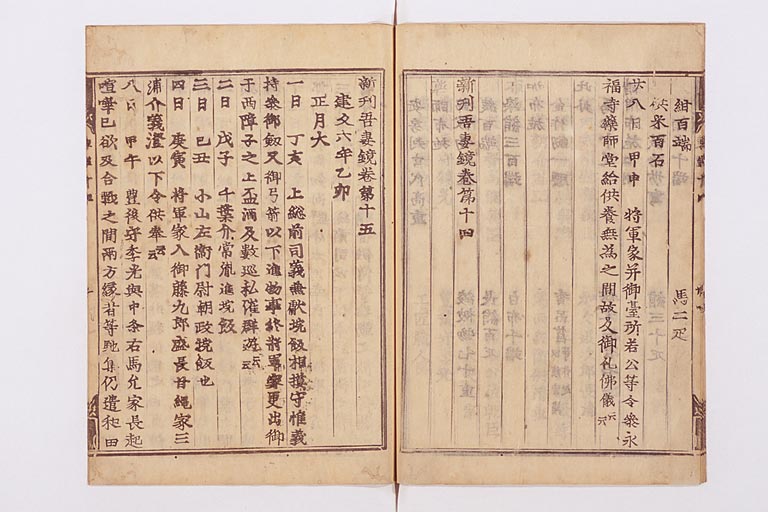 紺百端
供米百石
馬二疋
廿八日　甲申　将軍家并御臺所若公等令参永
福寺藥師堂給供養無為之間故及御礼佛儀云云
新刊吾妻鏡卷第十四
新刊吾妻鏡卷第十五
建久六年乙卯
正月大
一日　丁亥　上総前司義兼献埦飯相摸守惟義
持参御釼又御弓箭以下進物事終将軍家更出御
于西障子之上盃酒及數巡私催群遊云云
二日　戊子　千葉介常胤進埦飯
三日　己丑　小山左衛門尉朝政埦飯也
四日　庚寅　将軍家入御藤九郎盛長甘縄家三
浦介義澄以下令供奉云云
八日　甲午　豊後守季光與中条右馬允家長起
喧嘩已欲及合戦之間兩方縁者等馳集仍遣和田